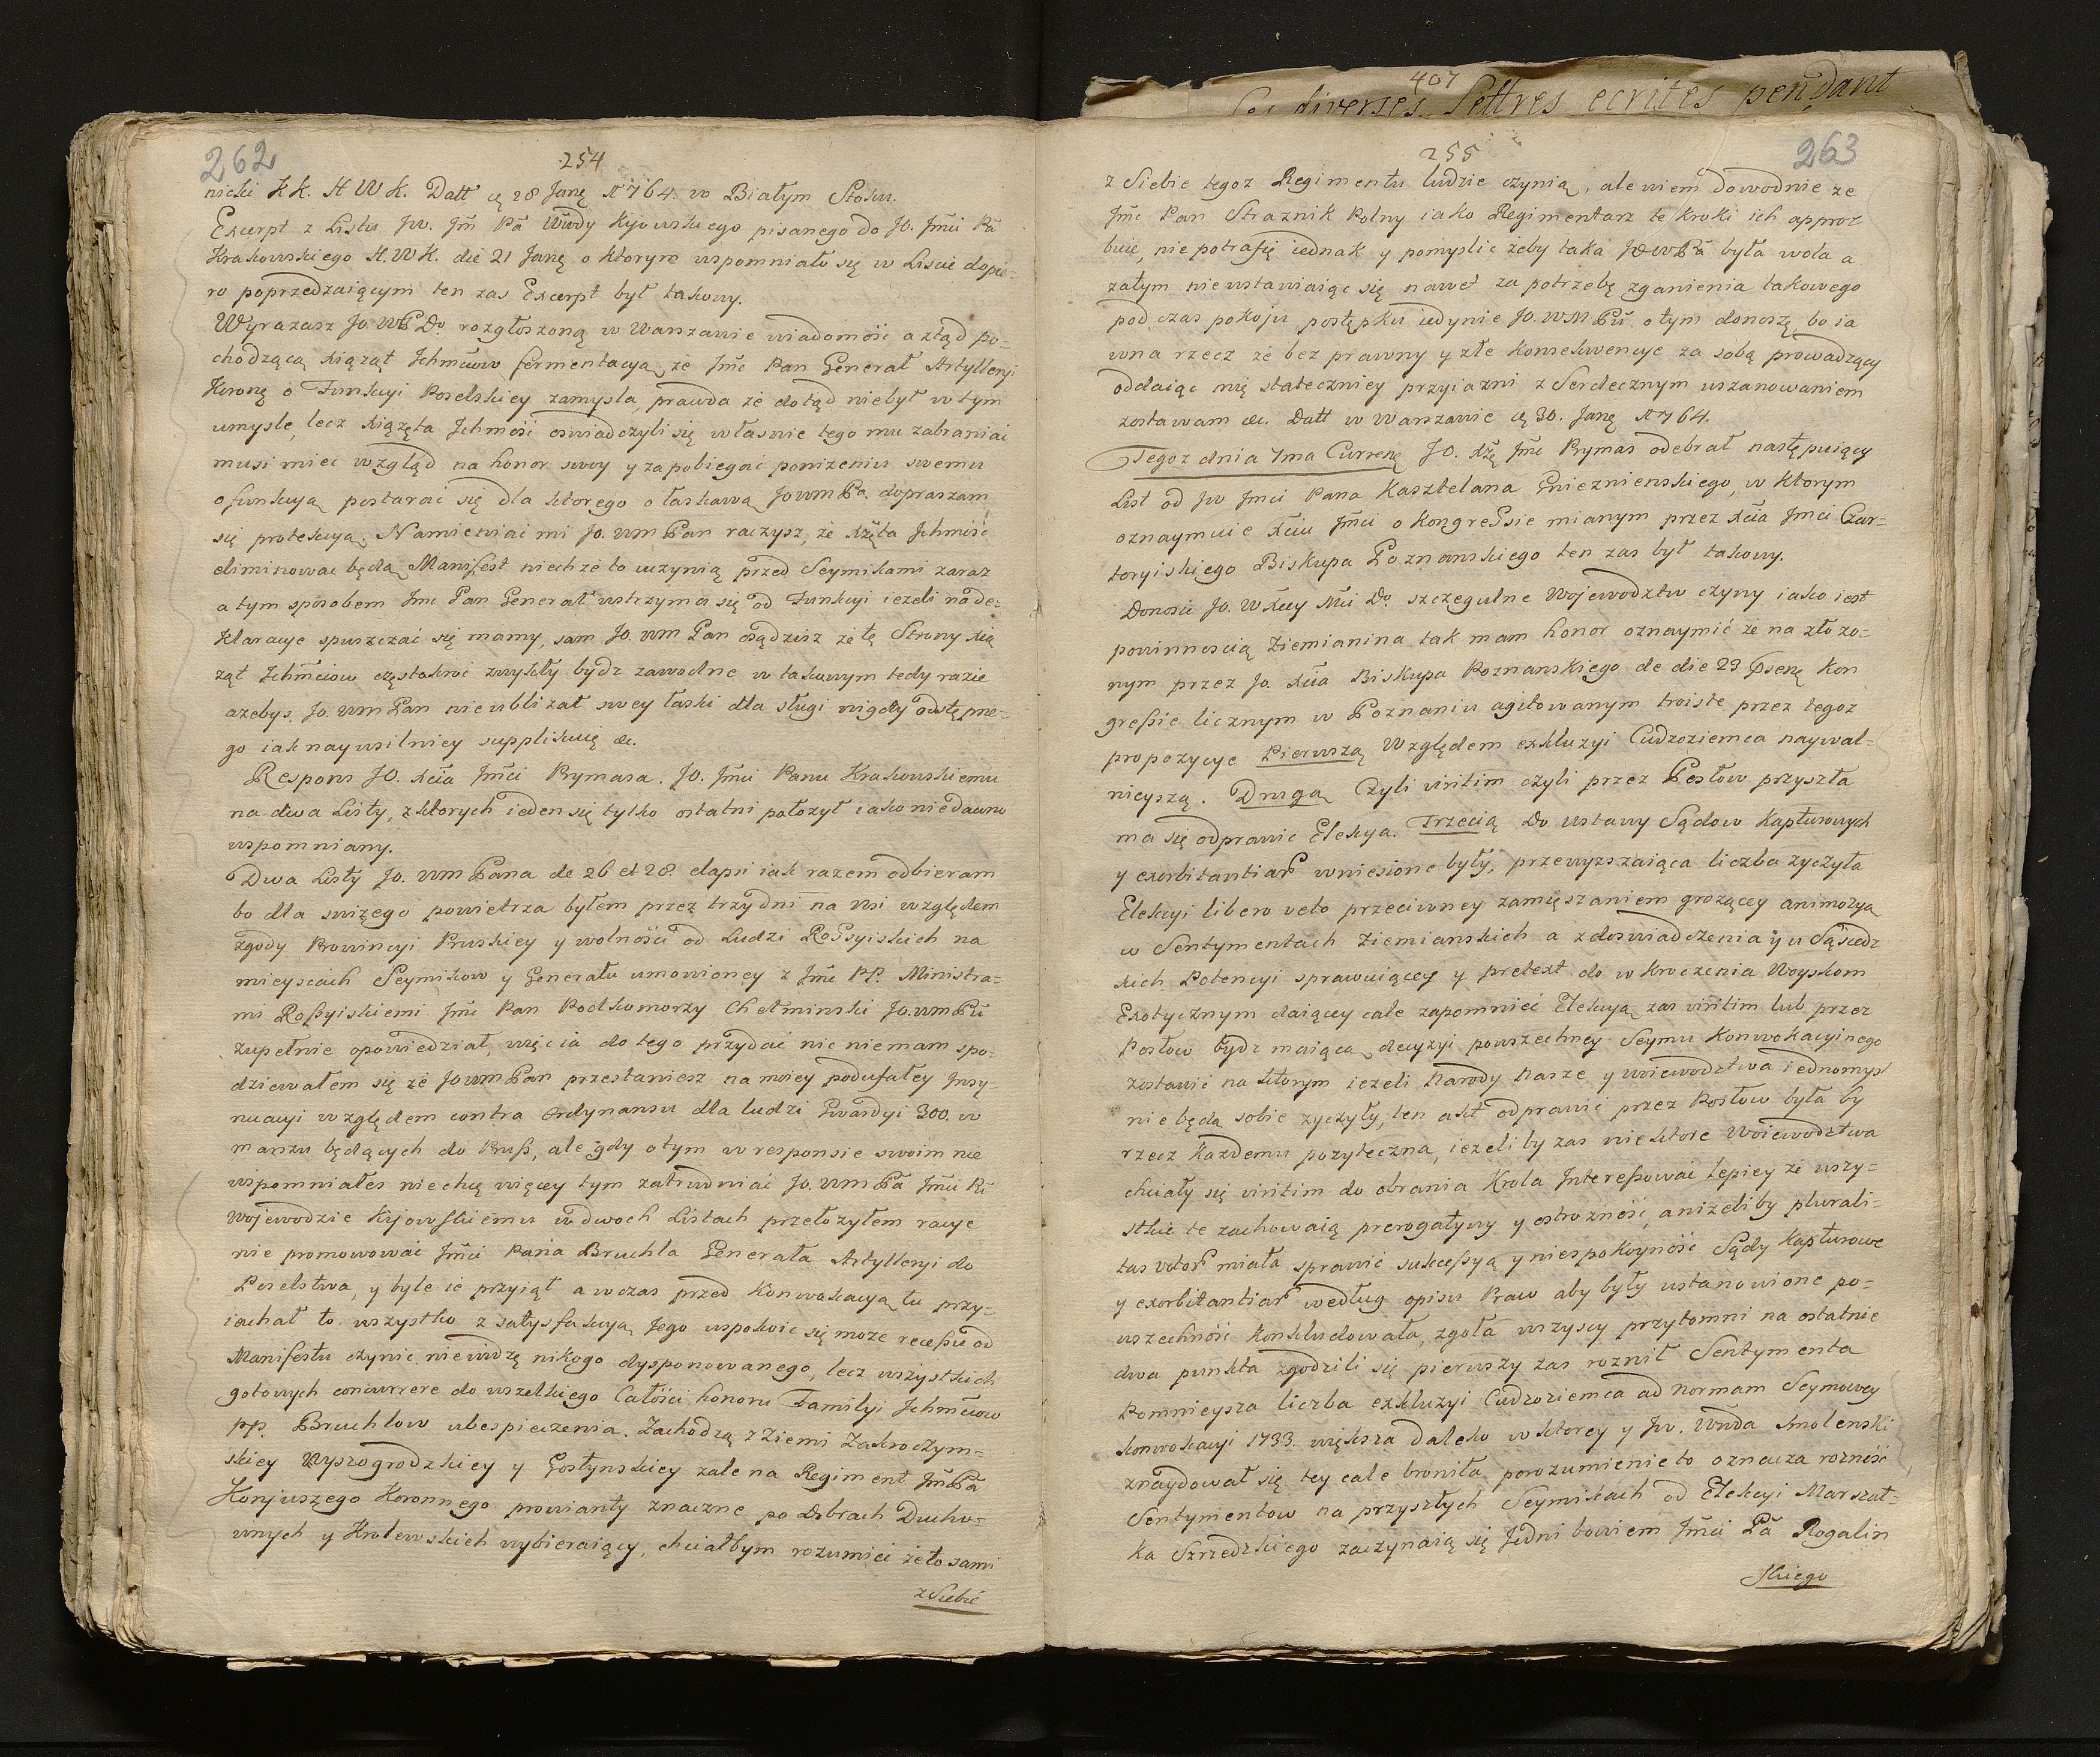 262
254
nicki KK. H W K. Datt ę 28 Janę 1764. w Białym Stoku.
Excerpt z Listu Jw. Jm̃ Pã Wwdy Kijowskiego pisanego do JO. Jm̃ci Pã
Krakowskiego H. W K. die 21 Janę o ktorym wspomniało się w Liscie dopie-
ro poprzedzaiącym ten zas Excerpt był takowy.
Wyrazasz Jo. WP Do rozgłoszoną w Warszawie wiadomość a ztąd po-
chodzącą xiąząt Ichmciow fermentacyą, ze Jm̃c Pan Generał Artylleryi
Koronę o Funkcyi Poselskiey zamysla, prawda ze dotąd niebył w tym
umysle, lecz xiązęta Ichmość oswiadczyli się własnie tego mu zabraniać
musi miec wzgląd na honor swoy y zapobiegać ponizeniu swemu
o funkcyą postarać się dla ktorego o łaskawą Jo wm Pa. dopraszam
się protekcyą. Namieniać mi Jo. wm Pan raczysz, że xzęta Ichmość
eliminować będą Manifest niech ze to uczynią przed Seymikami zaraz
a tym sposobem Jmc Pan Generał wstrzyma się od Funkcyi iezeli na de-
klaracye spuszczać się mamy, sam Jo. wm Pan osądzisz że tę Strony xią
ząt Ichmciow częstokroć zwykły bydz zawodne w takowym tedy razie
azebys. Jo. wm Pan nieublizał swey łaski dla sługi nigdy odstępne-
go iak nayusilniey supplikuię &c.
Respons JO. Xcia Jm̃ci Prymasa. Jo. Jm̃ci Panu Krakowskiemu
na dwa Listy, z ktorych ieden się tylko ostatni połozył iako niedawno
wspomniany.
Dwa Listy Jo. wm Pana de 26 et 28 elapsi iak razem odbieram
bo dla swizego powietrza byłem przez trzy dni na wsi względem
zgody Prowincyi Pruskiey y wolności od Ludzi Rossyiskich na
mieyscach Seymikow y Generału umowioney z Jm̃c PP. Ministra-
mi Rossyiskiemi Jm̃c Pan Podkomorzy Chełminski Jo. wm Pũ
zupełnie opowiedział, więc ia do tego przydać nic niemam spo-
dziewałem się że Jo wm Pan przestaniesz na moiey podufałey Insy-
nuacyi względem contra Ordynansu dla ludzi Gwardyi 300. w
marszu będących do Pruss, ale gdy o tym w responsie swoim nie
wspomniałes niechcę więcey tym zatrudniać Jo. wm Pã Jm̃ci Pũ
Wojewodzie Kijowskiemu w dwoch Listach przełozyłem racye
nie promowować Jm̃ci Pana Bruchla Generała Artylleryi do
Poselstwa, y byle ie przyiął a wczas przed Konwokacyą tu przy-
iachał to wszystko z satysfakcyą Jego uspokoic się moze recessu od
Manifestu czynic niewidzę nikogo dysponowanego, lecz wszystkich
gotowych concurrere do wszelkiego Całości honoru Familyi Ichmciow
pp. Bruchlow ubespieczenia. Zachodzą z Ziemi Zakroczym-
skiey Wyszogrodzkiey y Gostynskiey zale na Regiment Jm̃ Pã
Konjuszego Koronnego prowianty znaczne po Dobrach Ducho-
wnych y Krolewskich wybieraiący, chciałbym rozumieć że to sami
z Siebie
407
Les diverses Lettres ecrites pendant
255
263
z Siebie tegoz Regimentu ludzie czynią, ale wiem dowodnie ze
Jm̃c Pan Straznik Polny iako Regimentarz te kroki ich appro-
buie, nie potrafię iednak y pomyslic żeby taka Jo w Pã była wola a
zatym nieustawiaiąc się nawet za potrzebę zganienia takowego
pod czas pokoju postępku iedynie JO. WM Pũ o tym donoszę, bo ia
wna rzecz że bez prawny y złe konsekwencye za sobą prowadzący
oddaiąc mię stateczniey przyiazni z Serdecznym uszanowaniem
zostawam &c. Datt w Warszawie ę 30. Janę 1764.
Tegoz dnia 1ma Currenę JO. Xżę Jm̃c Prymas odebrał następuiący
List od Jw Jmci Pana Kasztelana Gnieznienskiego, w ktorym
oznaymuie Xciu Jm̃ci o Kongressie mianym przez Xcia Jmci Czar-
toryiskiego Biskupa Poznanskiego ten zas był takowy.
Donosić Jo. W Xcey Mci Do. szczegulne Wojewodztw czyny iako iest
powinnoscią Ziemianina tak mam honor oznaymić że na zło zo-
nym przez Jo. Xcia Biskupa Poznanskiego de die 23 psenę Kon
gressie licznym w Poznaniu agitowanym troiste przez tegoz
propozycye Pierwszą Względem exkluzyi Cudzoziemca naywal-
nieyszą. Drugą Czyli viritim czyli przez Posłow przyszła
ma się odprawic Elekcya. Trzecią Do ustawy Sądow Kapturowych
y exorbitantiar wniesione były, przewyzszaiąca liczba zyczyła
Elekcyi libero veto przeciwney zamięszaniem grozącey animozyą
w Sentymentach Ziemianskich a z doswiadczenia y u Sąsiedz
kich Potencyi sprawuiącey y pretext do wkroczenia Woyskom
Exotycznym daiącey cale zapomnieć Elekcyą zas viritim lub przez
Posłow bydz maiącą decyzyi powszechney Seymu Konwokacyinego
zostawić na ktorym iezeli Narody Nasze y woiewodztwa iednomysl
nie będą sobie zyczyły, ten akt odprawić przez Posłow była by
rzecz kazdemu pozyteczna, iezeliby zas niektore Woiewodztwa
chciały się viritim do obrania Krola Interessować lepiey że wszy-
stkie te zachowaią prerogatywy y ostrozność, anizeliby plurali-
tas votor miała sprawić sukcessyą y niespokoyność Sądy Kapturowe
y exorbitantiar według opisu Praw aby były ustanowione po-
wszechność konkludowała, zgoła wszyscy przytomni na ostatnie
dwa punkta zgodzili się pierwszy zas roznił Sentymenta
Pomnieysza liczba exkluzyi Cudzoziemca ad normam Seymowey
konwokacyi 1733. większa daleko w ktorey y Jw. Wwda Smolenski
znaydował się tey cale broniła porozumienie to oznacza rozność
Sentymentow na przyszłych Seymikach od Elekcyi Marszał-
ka Szrzedzkiego zaczynaią się Jedni bowiem Jm̃ci Pã Rogalin
skiego